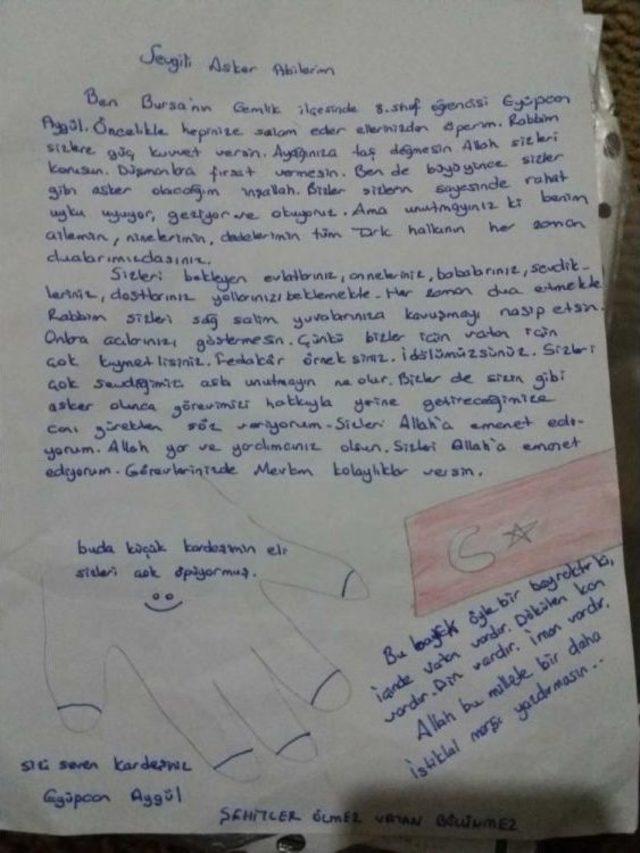 Sevgili Asker Abilerim
Ben Bursa'nın Gemlik ilçesinde 8. sınıf öğrencisi Eyüpcan
Aygül. Öncelikle hepinize selam eder ellerinizden öperim. Rabbim
sizlere güç kuvvet versin. Ayağınıza taş değmesin Allah sizleri
korusun. Düşmanlara fırsat vermesin. Ben de büyüyünce sizler
gibi asker olacağım inşallah. Bizler sizlerin sayesinde rahat
uyku uyuyor, geziyor ve okuyoruz. Ama unutmayınız ki benim
ailemin, ninelerimin, dedelerimin tüm Türk halkının her zaman
dualarımızdasınız.
Sizleri bekleyen evlatlarınız, anneleriniz, babalarınız, sevdik-
leriniz, dostlarınız yollarınızı beklemekte. Her zaman dua etmekte
Rabbim sizleri sağ salim yuvalarınıza kavuşmayı nasip etsin.
Onlara acılarınızı göstermesin. Çünkü bizler için vatan için
çok kıymetlisiniz. Fedakâr örneksiniz. İdolümüzsünüz. Sizleri
çok sevdiğimizi asla unutmayın ne olur. Bizler de sizin gibi
asker olunca görevimizi hakkıyla yerine getireceğimize
canı gürekten söz veriyorum. Sizleri Allah'a emanet edi-
yorum. Allah yar ve yardımcınız olsun. Sizleri Allah'a emanet
ediyorum. Görevlerinizde Mevlam kolaylıklar versin.
buda küçük kardeşimin eli
sizleri çok öpüyormuş.
Bu bayrak öyle bir bayraktır ki,
içinde vatan vardır. Dökülen kan
vardır. Din vardır. İman vardır.
Allah bu millete bir daha
İstiklal marşı yazdırmasın...
sizi seven kardeşiniz
Eyüpcan Aygül
ŞEHİTLER ÖLMEZ VATAN BÖLÜNMEZ